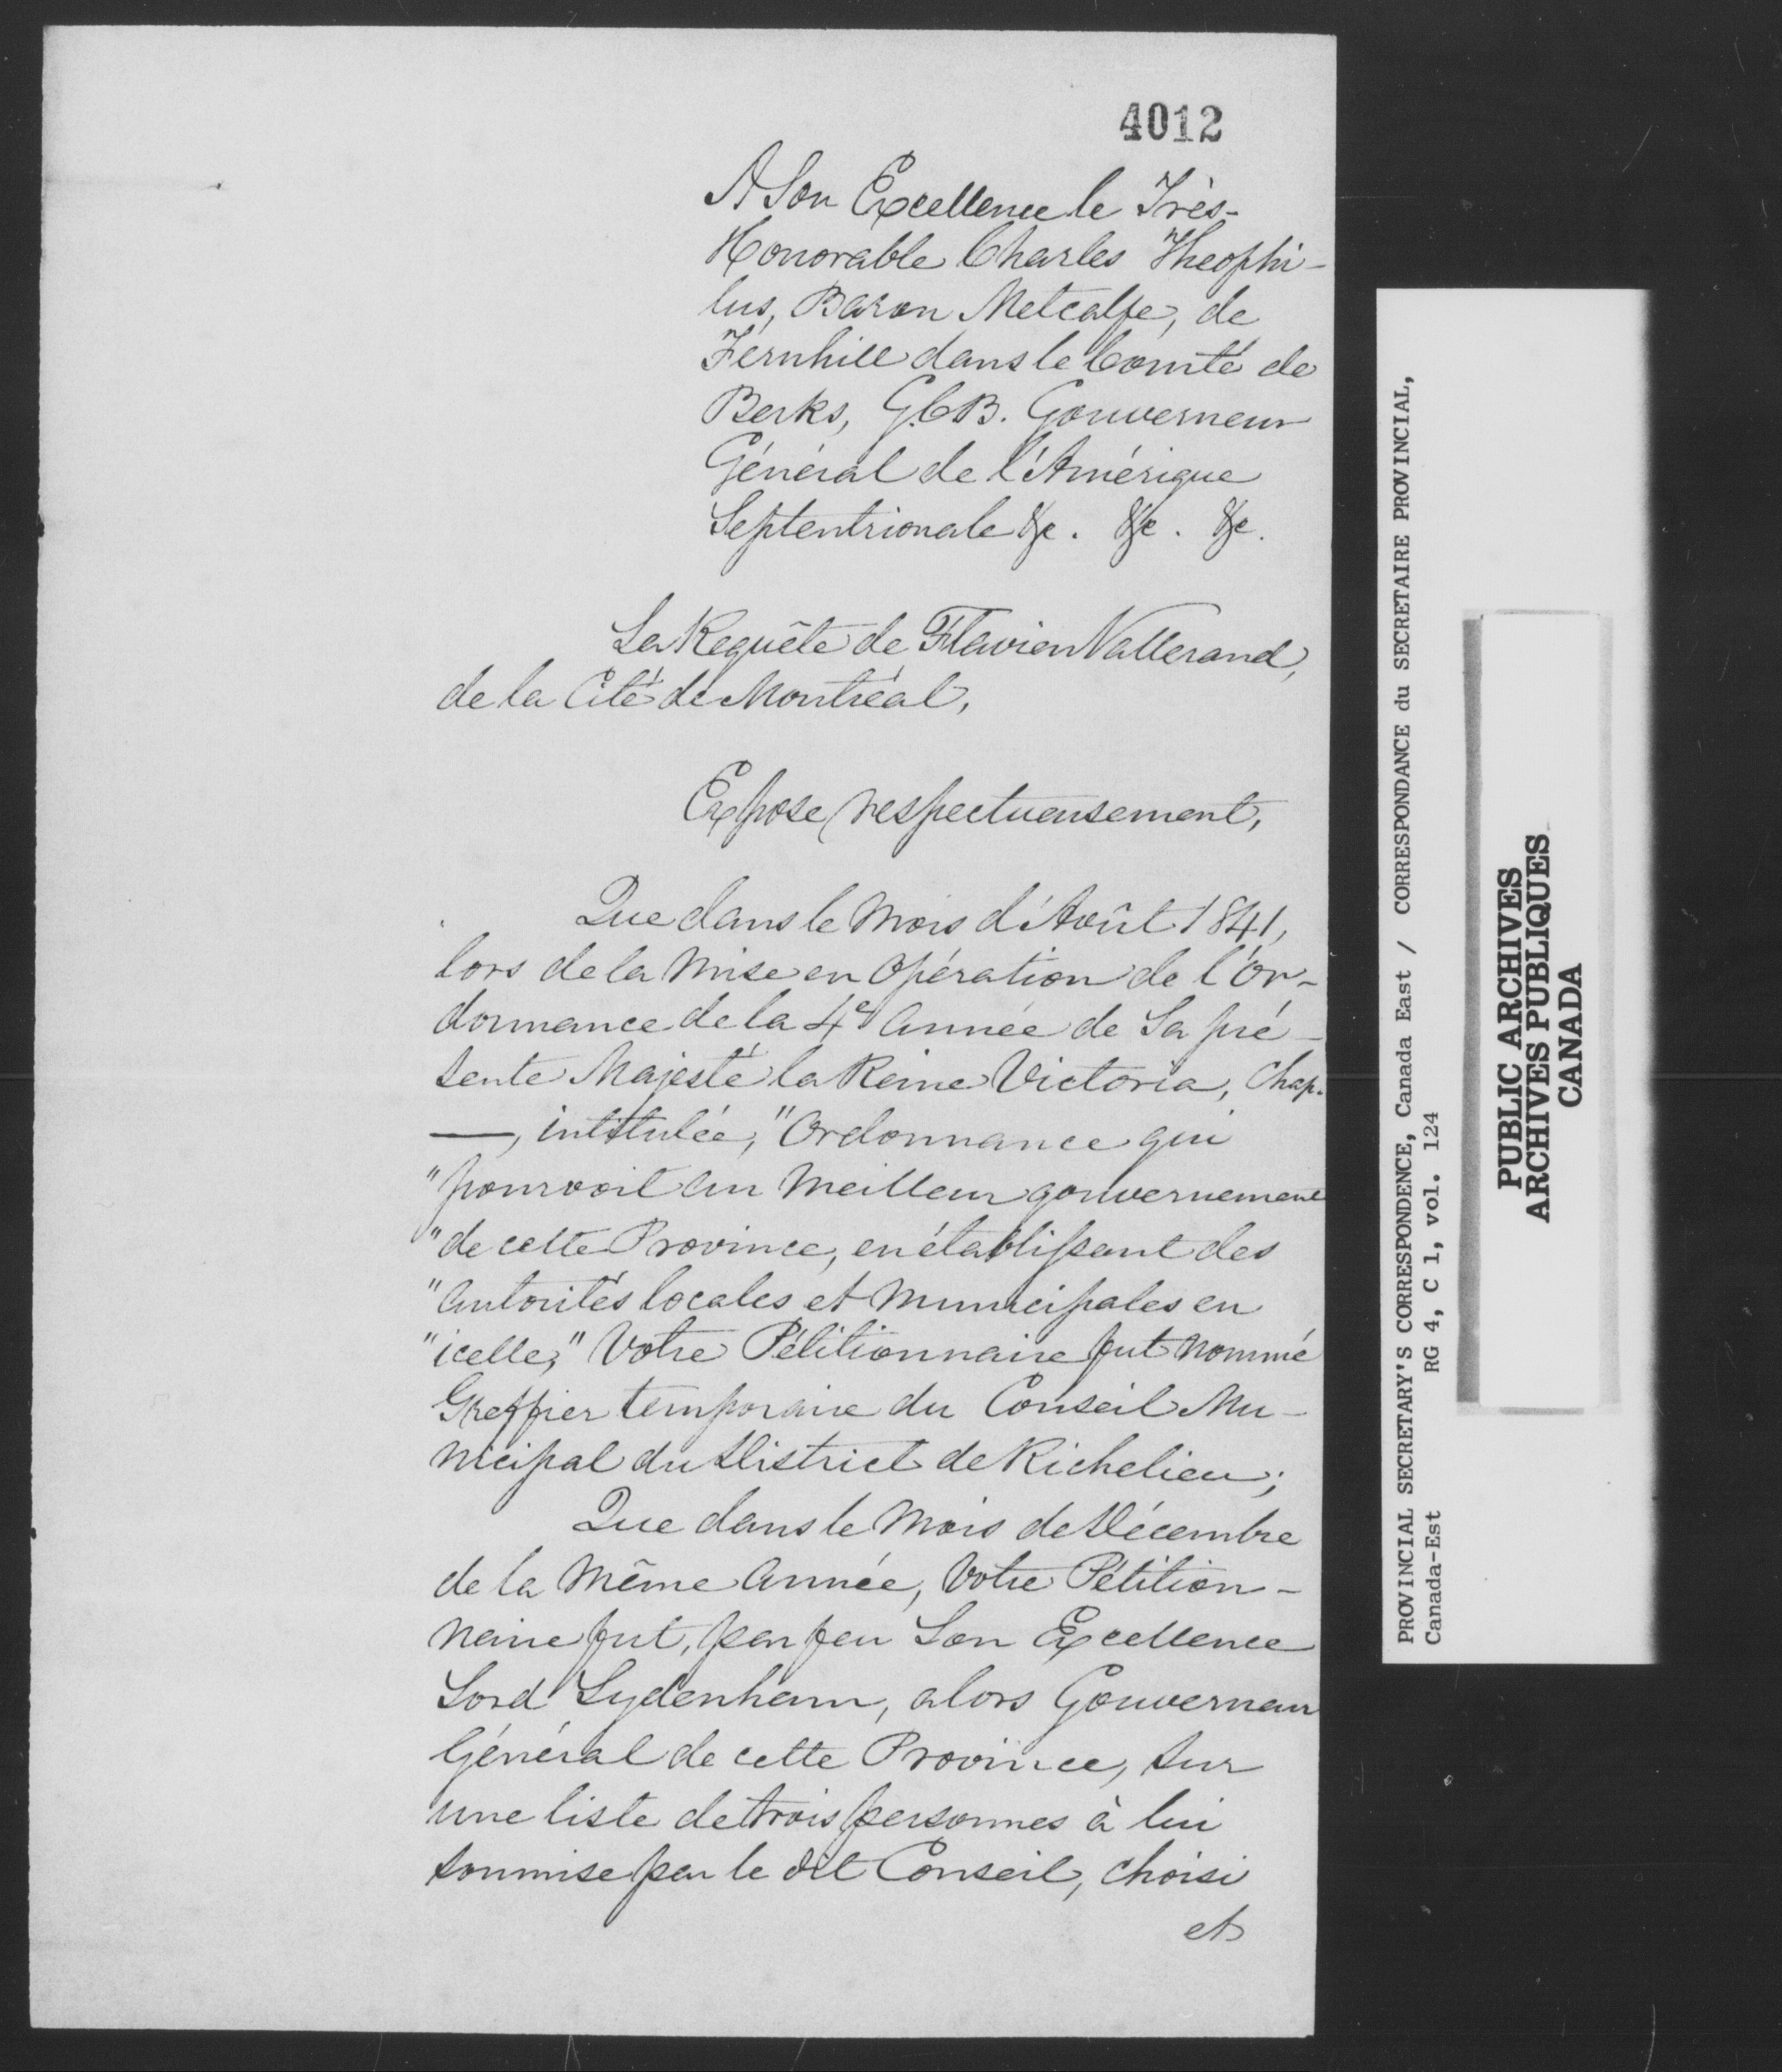 4012
A Son Excellence le Très-
Honorable Charles Theophi-
lus, Baron Metcalfe, de
Fernhill dans le Comté de
Berks, G.C.B. Gouverneur
Général de l'Amérique
Septentrionale &c. &c. &c.
La Requête de Flavien Vallerand,
de la Cité de Montréal,
Expose respectueusement,
Que dans le Mois d'Août 1841,
lors de la Mise en Opération de l'Or-
donnance de la 4e Année de Sa pré-
sente Majesté la Reine Victoria, Chap.
—, intitulée, "Ordonnance qui
"pourvoit au Meilleur gouvernement
"de cette Province, en établissant des
"Autorités locales et Municipales en
"icelle," Votre Pétitionnaire fut Nommé
Greffier temporaire du Conseil Mu-
nicipal du District de Richelieu;
Que dans le Mois de Décembre
de la Même Année, Votre Pétition-
naire fut, par feu Son Excellence
Lord Sydenham, alors Gouverneur
Général de cette Province, sur
une liste de trois personnes à lui
soumise par le dit Conseil, choisi
et
PROVINCIAL SECRETARY'S CORRESPONDENCE, Canada East / CORRESPONDANCE du SECRETAIRE PROVINCIAL,
Canada-Est RG 4, C 1, vol. 124
PUBLIC ARCHIVES
ARCHIVES PUBLIQUES
CANADA